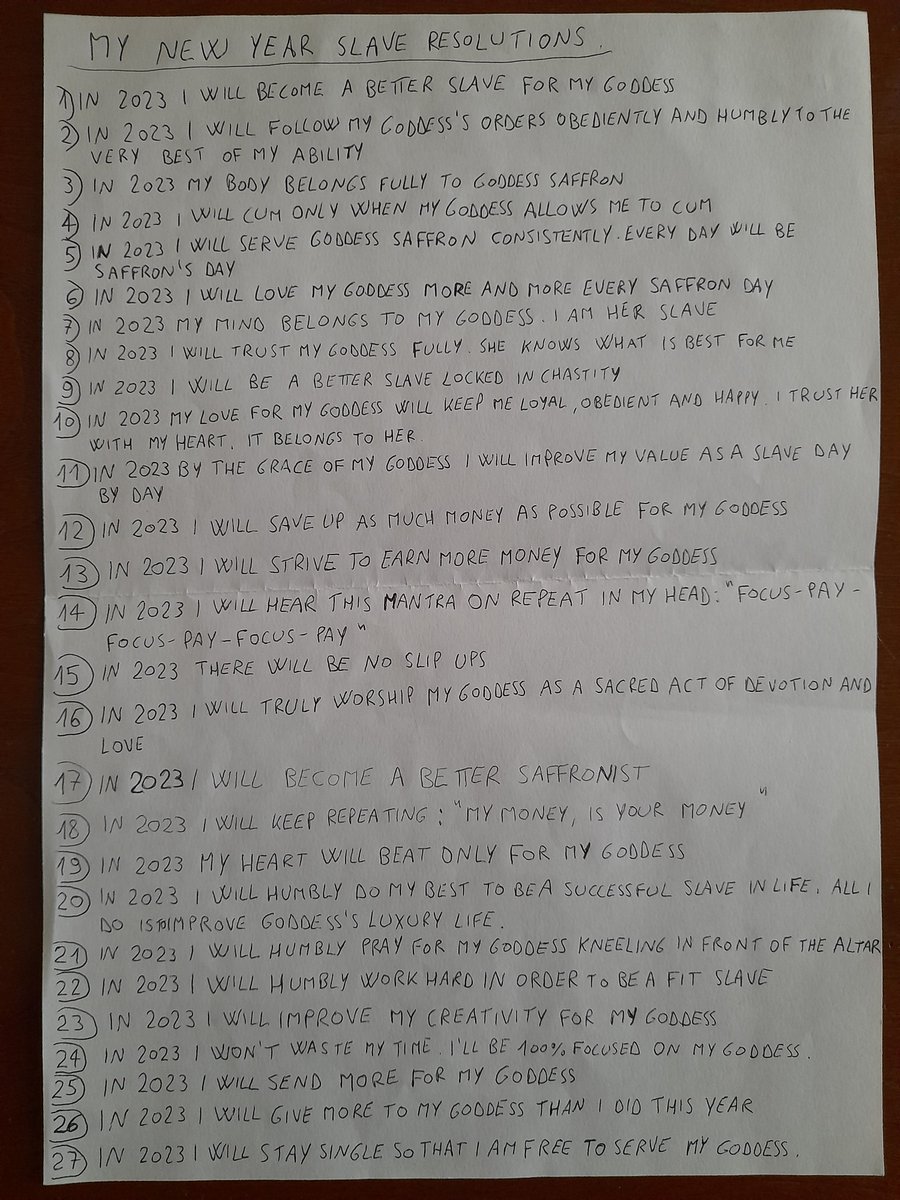 MY NEW YEAR SLAVE RESOLUTIONS.
1) IN 2023 I WILL BECOME A BETTER SLAVE FOR MY GODDESS
2) IN 2023 I WILL FOLLOW MY GODDESS'S ORDERS OBEDIENTLY AND HUMBLY TO THE
VERY BEST OF MY ABILITY
3) IN 2023 MY BODY BELONGS FULLY TO GODDESS SAFFRON
4) IN 2023 I WILL CUM ONLY WHEN MY GODDESS ALLOWS ME TO CUM
5) IN 2023 I WILL SERVE GODDESS SAFFRON CONSISTENTLY. EVERY DAY WILL BE
SAFFRON'S DAY
6) IN 2023 I WILL LOVE MY GODDESS MORE AND MORE EVERY SAFFRON DAY
7) IN 2023 MY MIND BELONGS TO MY GODDESS. I AM HER SLAVE
8) IN 2023 I WILL TRUST MY GODDESS FULLY. SHE KNOWS WHAT IS BEST FOR ME
9) IN 2023 I WILL BE A BETTER SLAVE LOCKED IN CHASTITY
10) IN 2023 MY LOVE FOR MY GODDESS WILL KEEP ME LOYAL, OBEDIENT AND HAPPY. I TRUST HER
WITH MY HEART. IT BELONGS TO HER.
11) IN 2023 BY THE GRACE OF MY GODDESS I WILL IMPROVE MY VALUE AS A SLAVE DAY
BY DAY
12) IN 2023 I WILL SAVE UP AS MUCH MONEY AS POSSIBLE FOR MY GODDESS
13) IN 2023 I WILL STRIVE TO EARN MORE MONEY FOR MY GODDESS
14) IN 2023 I WILL HEAR THIS MANTRA ON REPEAT IN MY HEAD: "FOCUS-PAY-
FOCUS-PAY-FOCUS-PAY"
15) IN 2023 THERE WILL BE NO SLIP UPS
16) IN 2023 I WILL TRULY WORSHIP MY GODDESS AS A SACRED ACT OF DEVOTION AND
LOVE
17) IN 2023 I WILL BECOME A BETTER SAFFRONIST
18) IN 2023 I WILL KEEP REPEATING: "MY MONEY, IS YOUR MONEY"
19) IN 2023 MY HEART WILL BEAT ONLY FOR MY GODDESS
20) IN 2023 I WILL HUMBLY DO MY BEST TO BE A SUCCESSFUL SLAVE IN LIFE. ALL I
DO IS TO IMPROVE GODDESS'S LUXURY LIFE.
21) IN 2023 I WILL HUMBLY PRAY FOR MY GODDESS KNEELING IN FRONT OF THE ALTAR
22) IN 2023 I WILL HUMBLY WORK HARD IN ORDER TO BE A FIT SLAVE
23) IN 2023 I WILL IMPROVE MY CREATIVITY FOR MY GODDESS
24) IN 2023 I WON'T WASTE MY TIME. I'LL BE 100% FOCUSED ON MY GODDESS.
25) IN 2023 I WILL SEND MORE FOR MY GODDESS
26) IN 2023 I WILL GIVE MORE TO MY GODDESS THAN I DID THIS YEAR
27) IN 2023 I WILL STAY SINGLE SO THAT I AM FREE TO SERVE MY GODDESS.